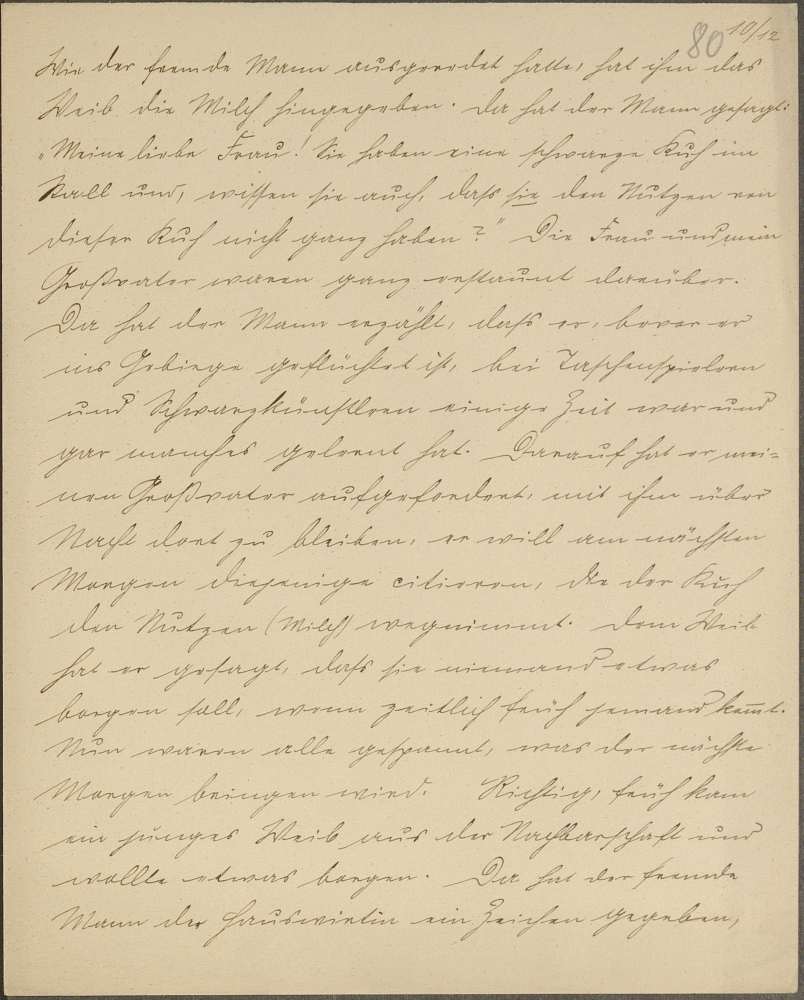 80 10/12
Wie der fremde Mann ausgeredet hatte, hat ihm das
Weib die Milch hingegeben. Da hat der Mann gesagt:
„Meine liebe Frau! Sie haben eine schwarze Kuh im
Stall und, wissen sie auch, dass sie den Nutzen von
dieser Kuh nicht ganz haben?" Die Frau und mein
Großvater waren ganz erstaunt darüber.
Da hat der Mann erzählt, dass er, bevor er
ins Gebirge geflüchtet ist, bei Taschenspielern
und Schwarzkünstlern einige Zeit war und
gar manches gelernt hat. Darauf hat er mei=
nen Großvater aufgefordert, mit ihm über
Nacht dort zu bleiben, er will am nächsten
Morgen diejenige citieren, die der Kuh
den Nutzen (Milch) wegnimmt. Dem Weib
hat er gesagt, dass sie niemand etwas
borgen soll, wenn zeitlich früh jemand kommt.
Nun waren alle gespannt, was der nächste
Morgen bringen wird. Richtig, früh kam
ein junges Weib aus der Nachbarschaft und
wollte etwas borgen. Da hat der fremde
Mann der Hauswirtin ein Zeichen gegeben,